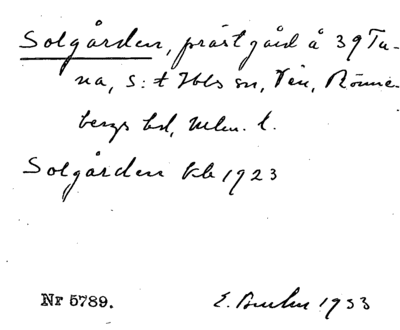 Solgården, prästgård å 39 Tu-
na, S:t Ibbs sn, Ven, Rönne-
bergs hd, Mlm. l.
Solgården kb 1923
Nr 5789. E. 1953